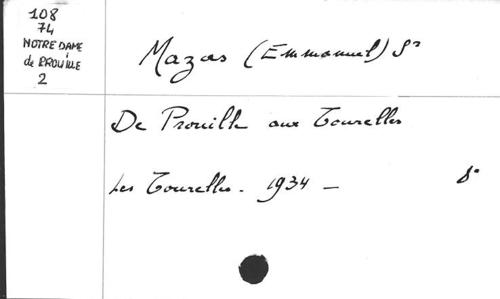 108
74
NOTRE DAME
de PROUILLE
2
Mazas (Emmanuel) Sr
De Prouille aux Tourelles
Les Tourelles. 1934 — 8°